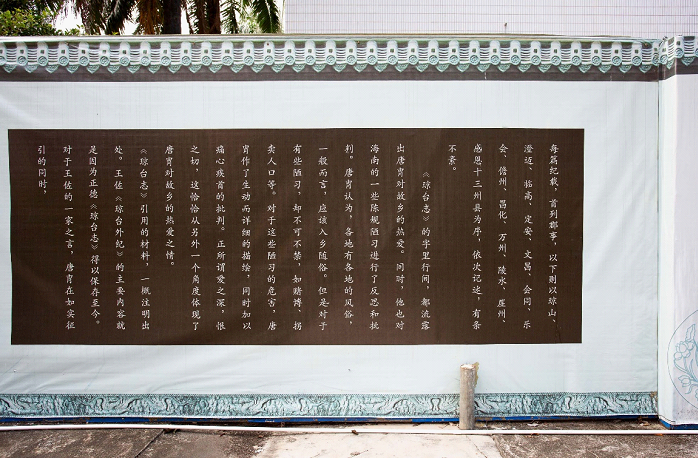 每篇纪载，首列郡事，以下则以琼山、
澄迈、临高、定安、文昌、会同、乐
会、儋州、昌化、万州、陵水、崖州、
感恩十三州县为序，依次记述，有条
不紊。
《琼台志》的字里行间，都流露
出唐胄对故乡的热爱。同时，他也对
海南的一些陈规陋习进行了反思和批
判。唐胄认为，各地有各地的风俗，
一般而言，应该入乡随俗。但是对于
有些陋习，却不可不禁，如赌博、拐
卖人口等。对于这些陋习的危害，唐
胄作了生动而详细的描绘，同时加以
痛心疾首的批判。正所谓爱之深，恨
之切，这恰恰从另外一个角度体现了
唐胄对故乡的热爱之情。
《琼台志》引用的材料，一概注明出
处。王佐《琼台外纪》的主要内容就
是因为正德《琼台志》得以保存至今。
对于王佐的一家之言，唐胄在如实征
引的同时，